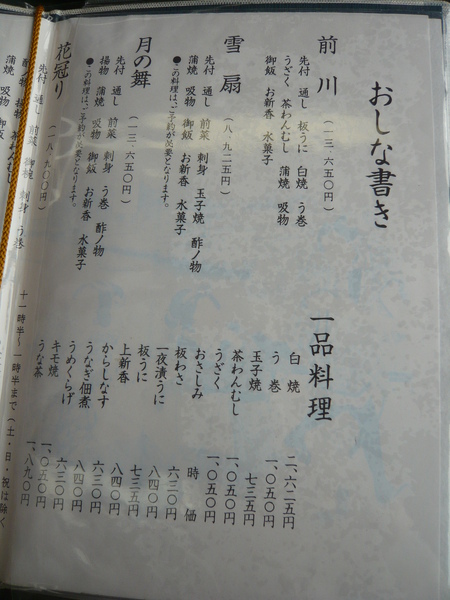 おしな書き
前川 (一三、六五〇円)
先付 通し 板うに 白焼 う巻
うざく 茶わんむし 蒲焼 吸物
御飯 お新香 水菓子
雪扇 (八、九二五円)
先付 通し 前菜 刺身 玉子焼 酢ノ物
蒲焼 吸物 御飯 お新香 水菓子
●この料理は、ご予約が必要となります。
月の舞 (一三、六五〇円)
先付 通し 前菜 刺身 う巻 酢ノ物
揚物 蒲焼 吸物 御飯 お新香 水菓子
●この料理は、ご予約が必要となります。
花冠り (一八、九〇〇円)
先付 通し 前菜 御椀 刺身 う巻
一品料理
白焼 二、六二五円
う巻 一、〇五〇円
玉子焼 七三五円
茶わんむし 一、〇五〇円
うざく 一、〇五〇円
おさしみ 時価
板わさ 六三〇円
一夜漬うに 八四〇円
板うに 七三五円
上新香 八四〇円
からしなす 六三〇円
うなぎ佃煮 八四〇円
うめくらげ 六三〇円
キモ焼 一、〇五〇円
うな茶 一、八九〇円
十一時半〜一時半まで(土・日・祝は除く